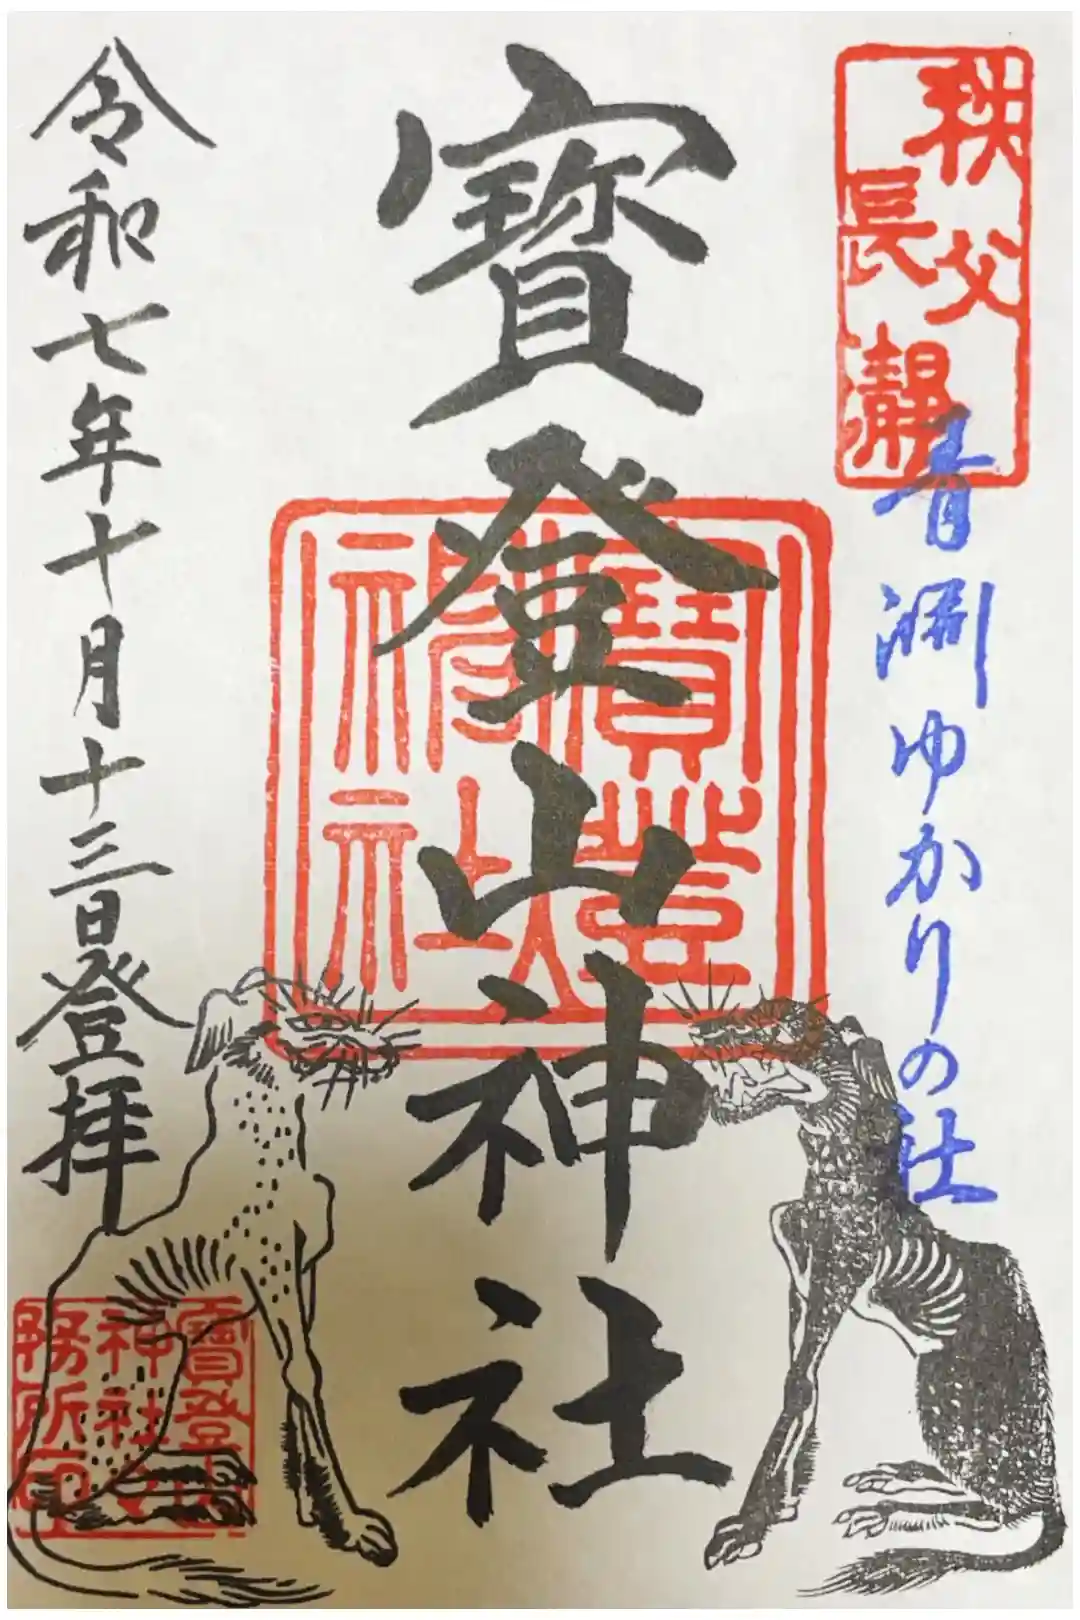 秩父
長瀞
青淵ゆかりの社
寳登山神社
寳登
神社
令和七年十月十三日登拝
寳登山
神社
務所